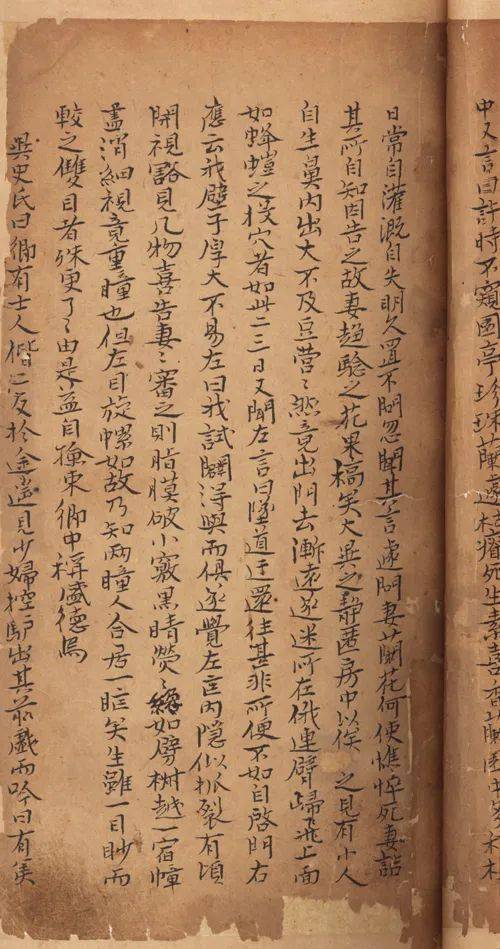 中又言曰許時不窺園亭珍珠蘭遽枯瘠死生素喜香蘭園中多
日常自灌溉自失明久置不問忽聞其言遽問妻蘭花何使憔悴死妻詰
其所自知因告之故妻趨驗之花果槁矣大異之靜匿房中以俟 之見有小人
自生鼻內出大不及豆營〻然竟出門去漸遠遂迷所在俄連臂歸飛上面
如蜂螘之投穴者如此二三日又聞左言曰墜道迂還往甚非所便不如自啓門右
應云我壁子厚大不易左曰我試闢得與而俱遂覺左匡內隱似抓裂有頃
開視豁見几物喜告妻〻審之則脂膜破小竅黑睛熒〻纔如劈椒越一宿幛
盡消細視竟重瞳也但左目旋螺如故乃知兩瞳人合居一眶矣生雖一目眇而
較之雙目者殊更了〻由是益自檢束鄉中稱盛德焉
異史氏曰鄉有士人偕二友於途遙見少婦控驢出其前戲而吟曰有美